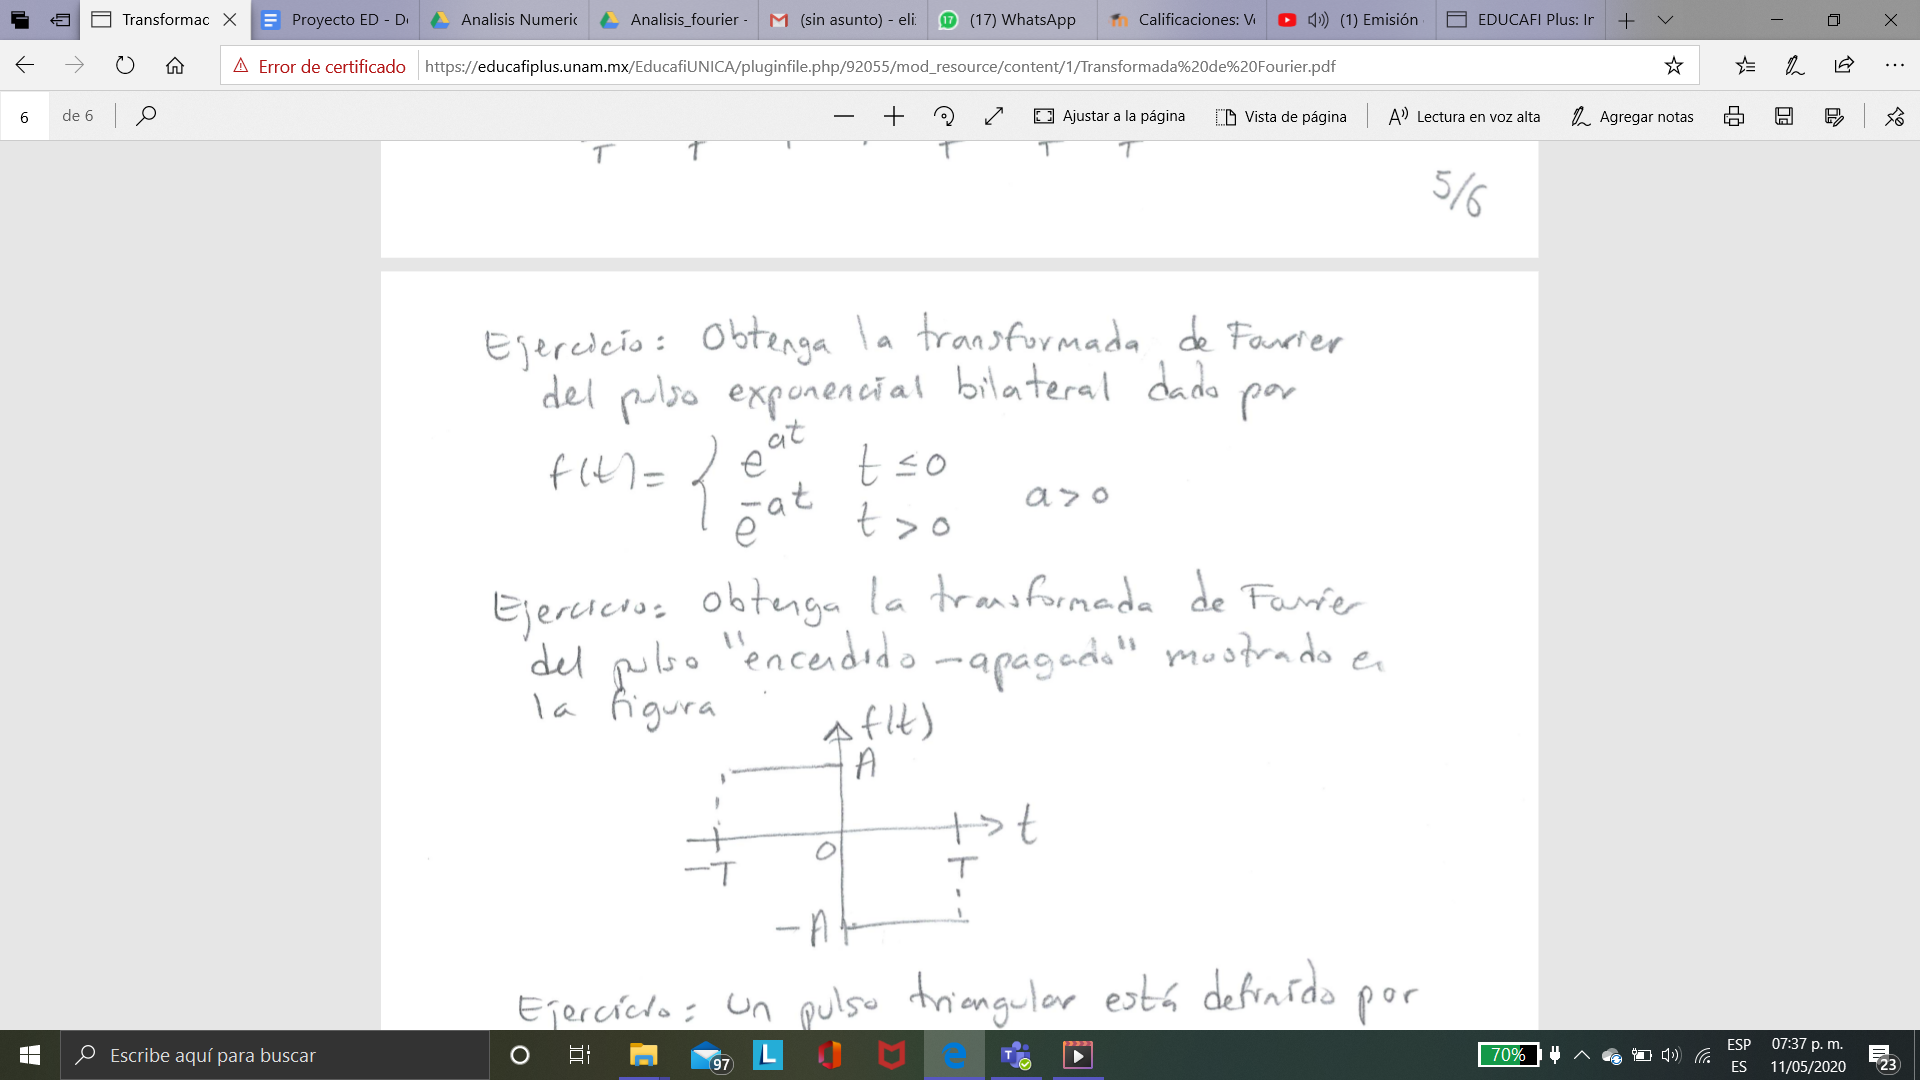 Transformac
Proyecto ED - D
Analisis Numeric
Analisis_fourier -
(sin asunto) - eli
(17) WhatsApp
Calificaciones: V
(1) Emisión
EDUCAFI Plus: Ir
Error de certificado
https://educafiplus.unam.mx/EducafiUNICA/pluginfile.php/92055/mod_resource/content/1/Transformada%20de%20Fourier.pdf
6 de 6
Ajustar a la página
Vista de página
Lectura en voz alta
Agregar notas
T T T T T
5/6
Ejercicio: Obtenga la transformada de Fourier
del pulso exponencial bilateral dado por
f(t) = { e^{at} t ≤ 0
e^{-at} t > 0 a > 0
Ejercicio: Obtenga la transformada de Fourier
del pulso "encendido - apagado" mostrado en
la figura
f(t)
A
t
-T 0 T
-A
Ejercicio: Un pulso triangular está definido por
Escribe aquí para buscar
97
70%
ESP
ES
07:37 p. m.
11/05/2020
23